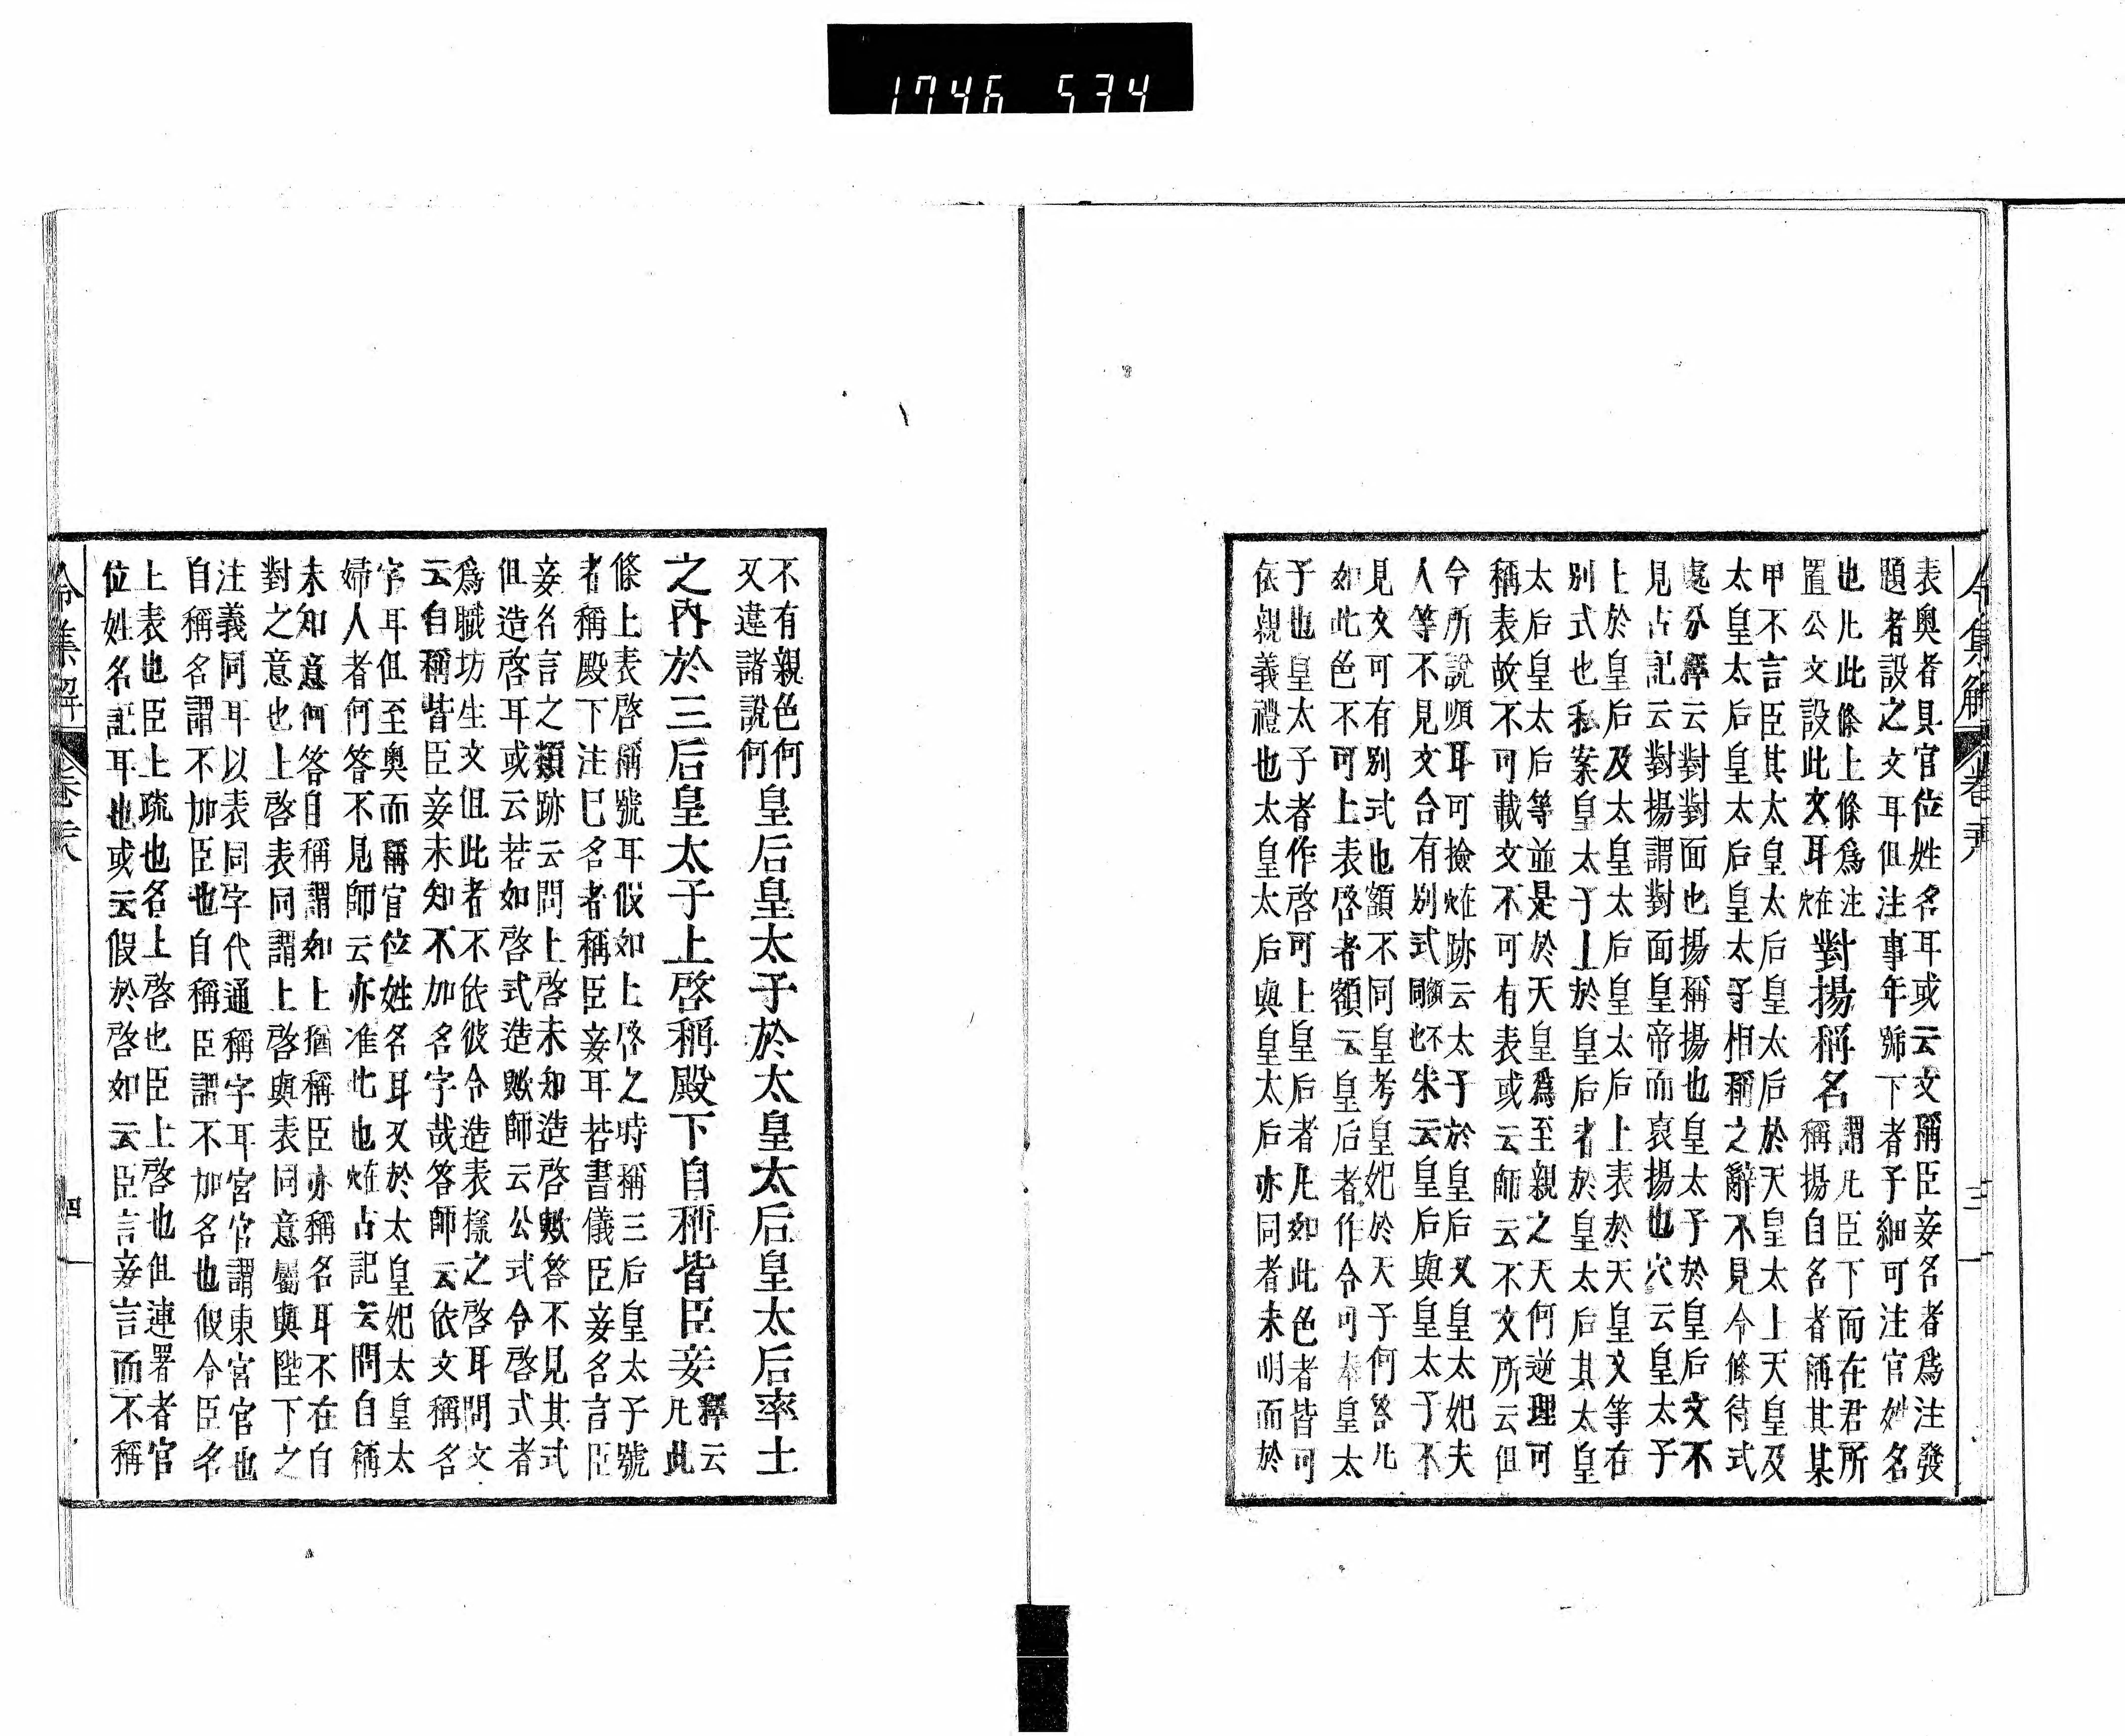 1746 534
表奧者具官位姓名耳或云文稱臣妾名者爲注發
題者設之文耳但注事年號下者子細可注官姓名
也凡此條上條爲注
置公文設此文耳穴在
對揚稱名
謂凡臣下而在君所
稱揚自名者稱其某
甲不言臣其太皇太后皇太后於天皇太上天皇及
太皇太后皇太后皇太子相稱之辭不見令條待式
處分釋云對對面也揚稱揚也皇太子於皇后文不
見古記云對揚謂對面皇帝而哀揚也穴云皇太子
上於皇后及太皇太后皇太后上表於天皇又等在
別式也私案皇太子上於皇后者於皇太后其太皇
太后皇太后等並是於天皇爲至親之天何逆理可
稱表故不可載文不可有表或云師云不文所云但
令所說順耳可撿在穴跡云太子於皇后又皇太妃夫
人等不見文合有別式額同也不朱云皇后與皇太子不
見文可有別式也額不同皇考皇妃於天子何答凡
如此色不可上表啓者額云皇后者作令可奉皇太
子也皇太子者作啓可上皇后者凡如此色者皆可
依親義禮也太皇太后與皇太后亦同者未明而於
令集解
卷
三
不有親色何
又違諸說何
皇后皇太子於太皇太后皇太后率土
之內於三后皇太子上啓稱殿下自稱皆臣妾
釋云
凡此
條上表啓稱號耳假如上啓之時稱三后皇太子號
者稱殿下注已名者稱臣妾耳若書儀臣妾名言臣
妾名言之類跡云問上啓未知造啓歟答不見其式
但造啓耳或云若如啓式造歟師云公式令啓式者
爲職坊生文但此者不依彼令造表㨾之啓耳問文
云自稱皆臣妾未知不加名字哉答師云依文稱名
字耳但至奧而稱官位姓名耳又於太皇妃太皇太
婦人者何答不見師云亦准此也在穴古記云問自稱
未知意何答自稱謂如上猶稱臣亦稱名耳不在自
對之意也上啓表同謂上啓與表同意屬與陛下之
注義同耳以表同字代通稱字耳宮官謂東宮官也
自稱名謂不加臣也自稱臣謂不加名也假令臣名
上表也臣上疏也名上啓也臣上啓也但連署者官
位姓名記耳也或云假於啓如云臣言妾言而不稱
令集解
卷
四